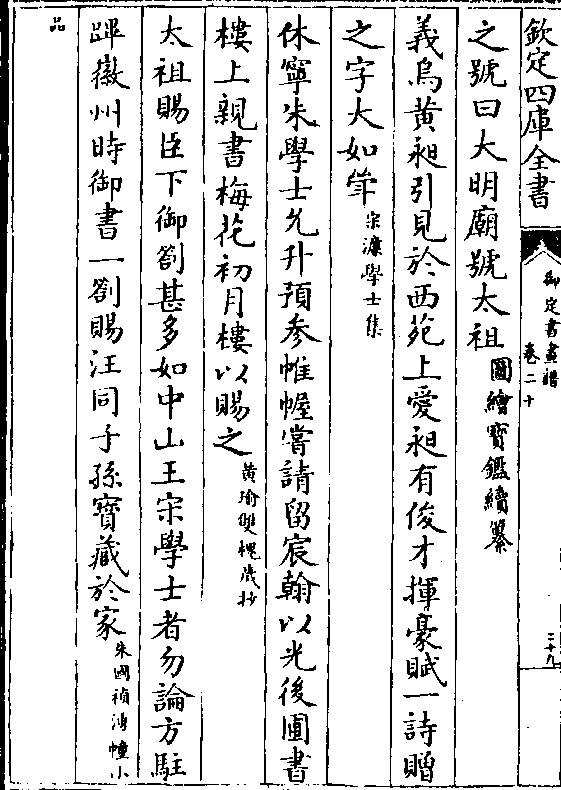 欽定四庫全書
御定書畫譜
卷二十
二十九
之號曰大明廟號太祖圖繪寶鑑續纂
義烏黄昶引見於西苑上愛昶有俊才揮豪賦一詩贈
之字大如掌宋濂學士集
休寧朱學士允升預參帷幄嘗請留宸翰以光後圃書
樓上親書梅花初月樓以賜之黄瑜雙槐歲抄
太祖賜臣下御劄甚多如中山王宋學士者勿論方駐
蹕徽州時御書一劄賜汪同子孫寳藏於家朱國禎湧幢小
品